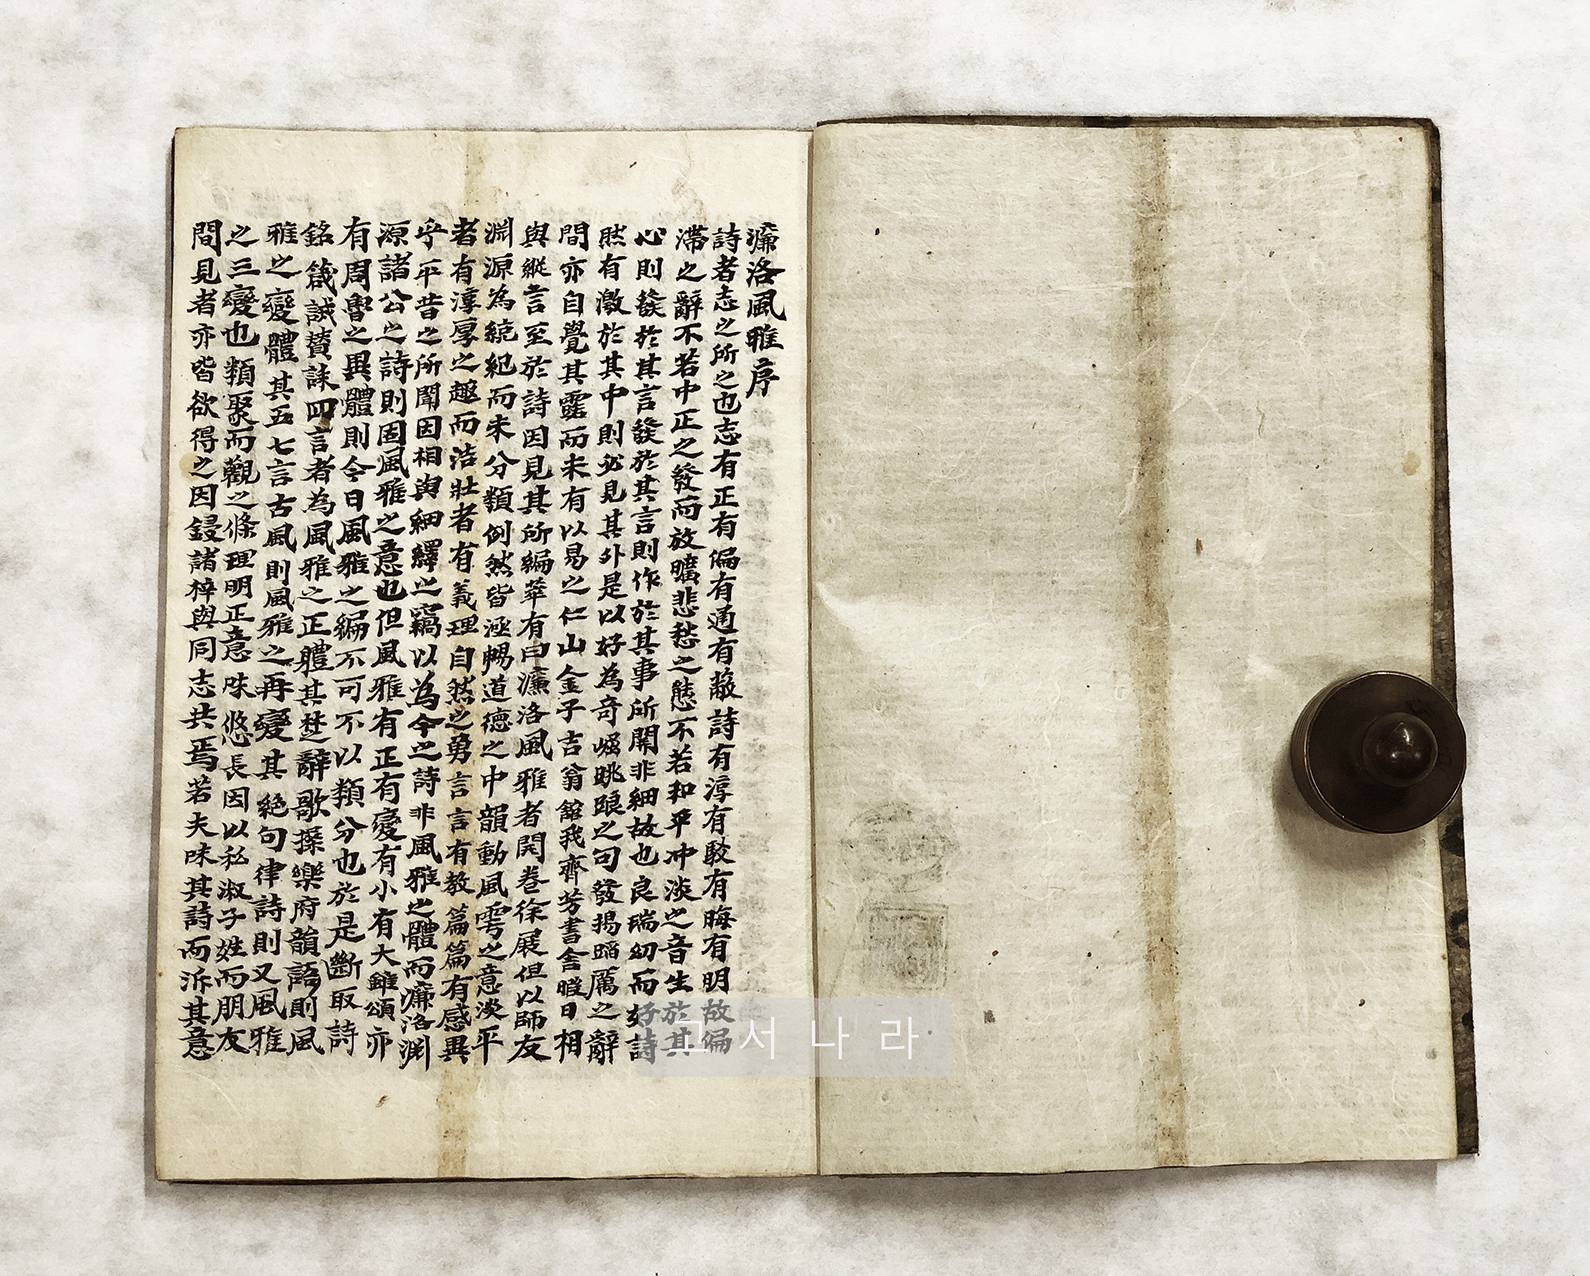 濂洛風雅序
詩者志之所之也志有正有偏有通有蔽詩有淳有駁有晦有明故偏
滯之辭不若中正之發而放曠悲愁之態不若和平冲淡之音生於其
心則發於其言發於其言則作於其事所關非細故也良瑞幼而好詩
然有激於其中則必見其外是以好為奇崛跳踉之句發揚蹈厲之辭
間亦自覺其靈而未有以易之仁山金子吉翁館我齊芳書舍暇日相
與縱言至於詩因見其所編萃有曰濂洛風雅者閱卷徐展但以師友
淵源為統紀而未分類例然皆涵暢道德之中韻動風雩之意淡平
者有淳厚之趣而浩壯者有義理自然之勇言言有教篇篇有感異
乎平昔之所聞因相與紬繹之竊以為今之詩非風雅之體而濂洛淵
源諸公之詩則固風雅之意也但風雅有正有變有小有大雖頌亦
有周魯之異體則今日風雅之編不可不以類分也於是斷取詩
銘箴誡贊誄四言者為風雅之正體其楚辭歌操樂府韻語則風
雅之變體其五七言古風則風雅之再變其絶句律詩則又風雅
之三變也類聚而觀之條理明正意味悠長因以私淑子姓而朋友
間見者亦皆欲得之因鋟諸梓與同志共焉若夫味其詩而泝其意
고서나라